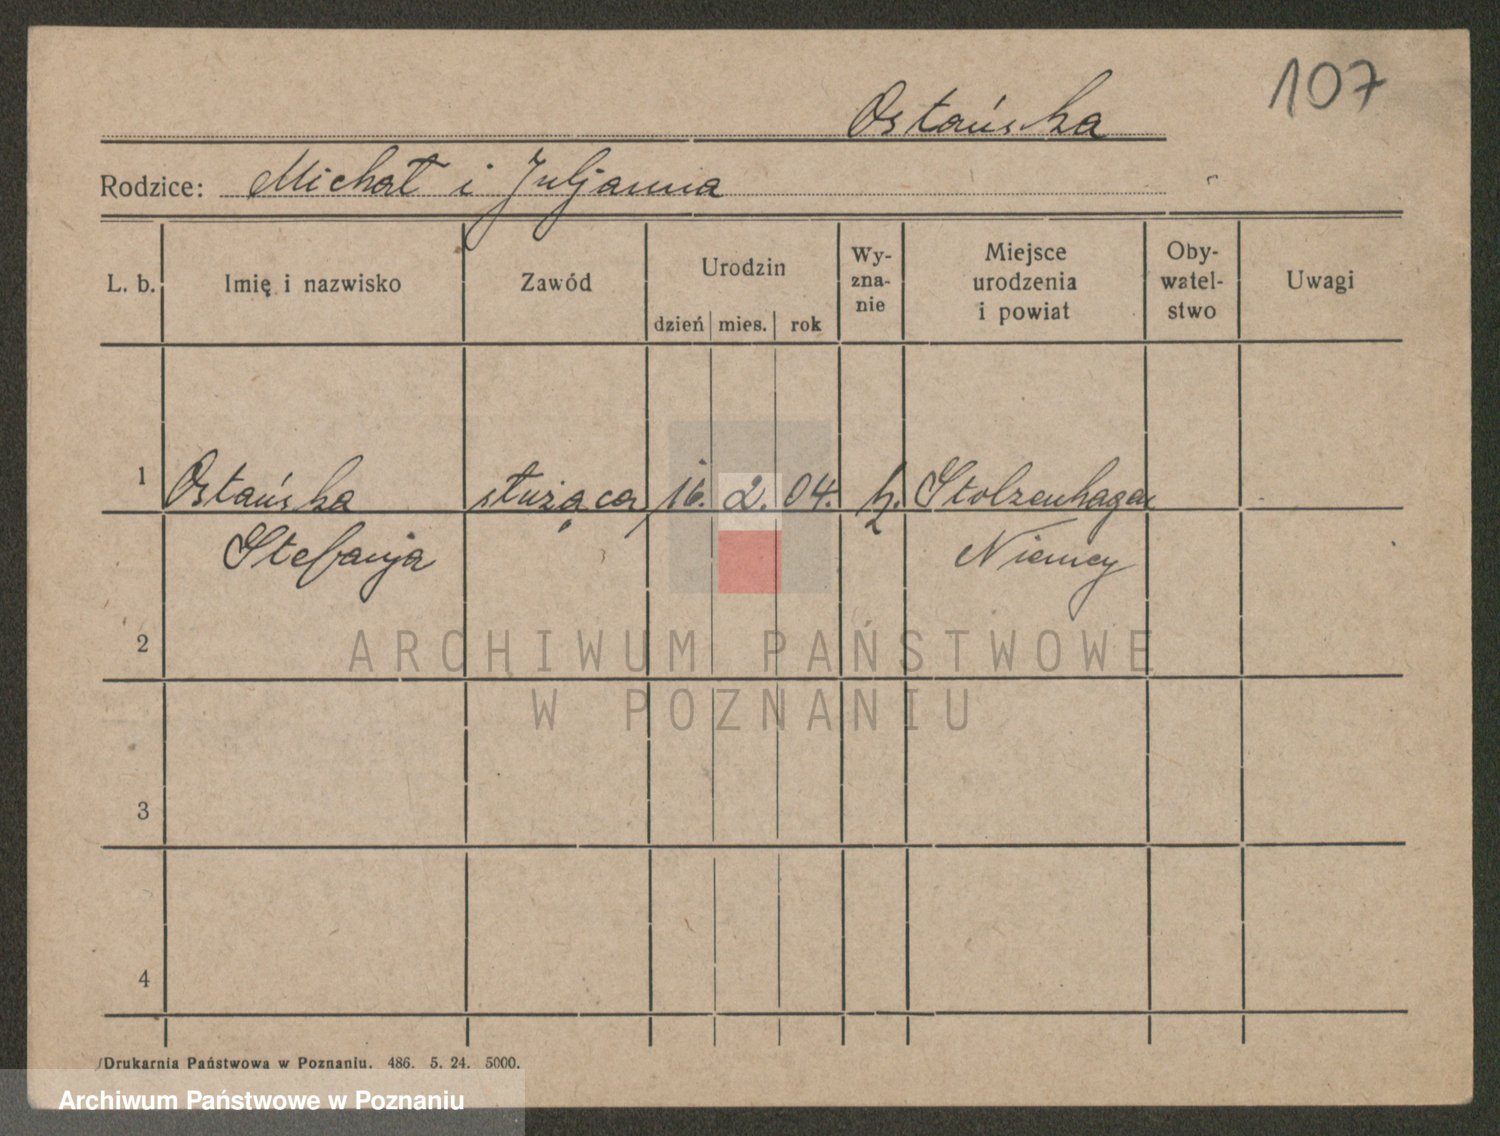 107
Ostańska
Rodzice: Michał i Juljanna
L. b. Imię i nazwisko Zawód Urodzin dzień mies. rok Wy-zna-nie Miejsce urodzenia i powiat Oby-watel-stwo Uwagi
1 Ostańska służąca 16. 2. 04. k. Stolzenhagen
Stefanja Niemcy
2
ARCHIWUM PAŃSTWOWE
W POZNANIU
3
4
Drukarnia Państwowa w Poznaniu. 486. 5. 24. 5000.
Archiwum Państwowe w Poznaniu